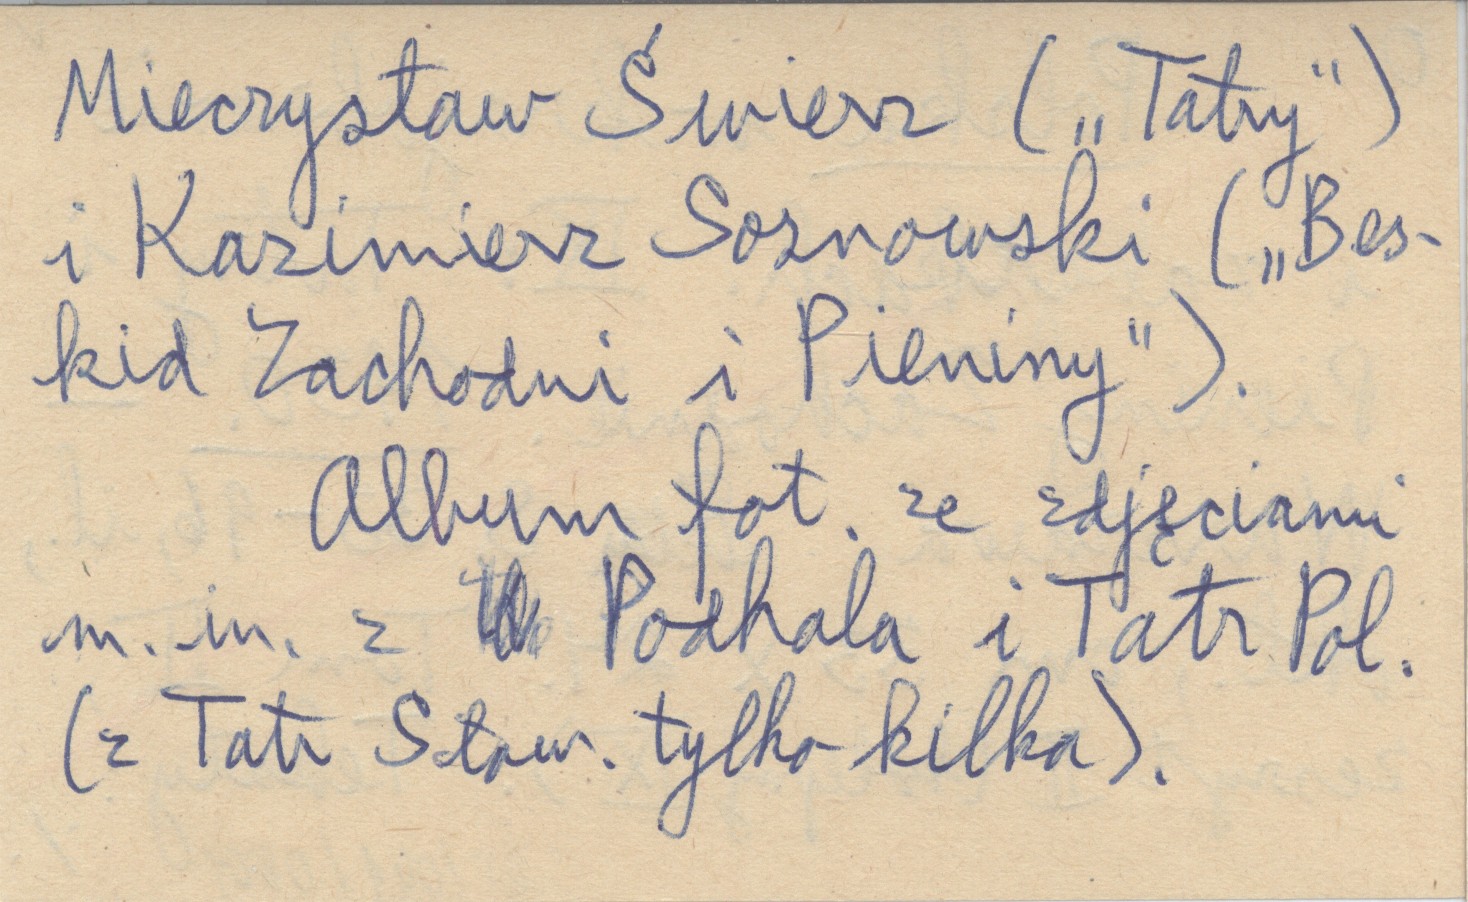 Mieczysław Świerz („Tatry”)
i Kazimierz Sosnowski („Bes-
kid Zachodni i Pieniny”).
Album fot. ze zdjęciami
m. in. z Podhala i Tatr Pol.
(z Tatr Słow. tylko kilka).